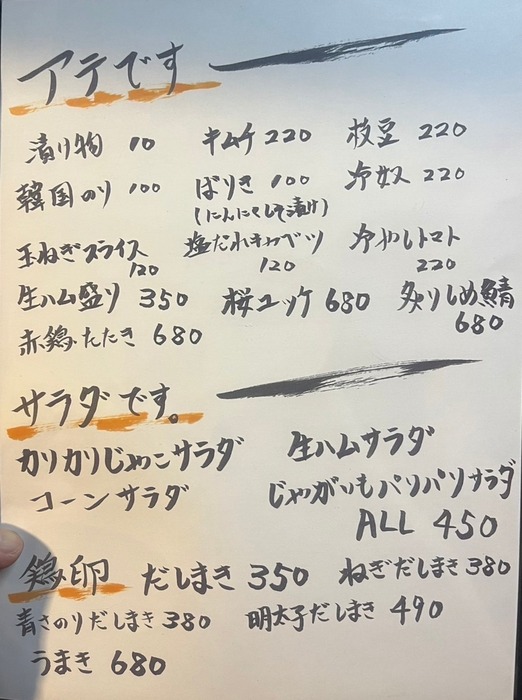 アテです
漬け物 10 キムチ 220 枝豆 220
韓国のり 100 ぱりき 100 冷奴 220
(にんにくしそ漬け)
玉ねぎスライス 塩だれキャベツ 冷やしトマト
120 120 220
生ハム盛り 350 桜ユッケ 680 炙りしめ鯖
赤鶏たたき 680 680
サラダです。
カリカリじゃこサラダ 生ハムサラダ
コーンサラダ じゃがいもパリパリサラダ
ALL 450
鶏卵 だしまき 350 ねぎだしまき 380
青さのりだしまき 380 明太子だしまき 490
うまき 680